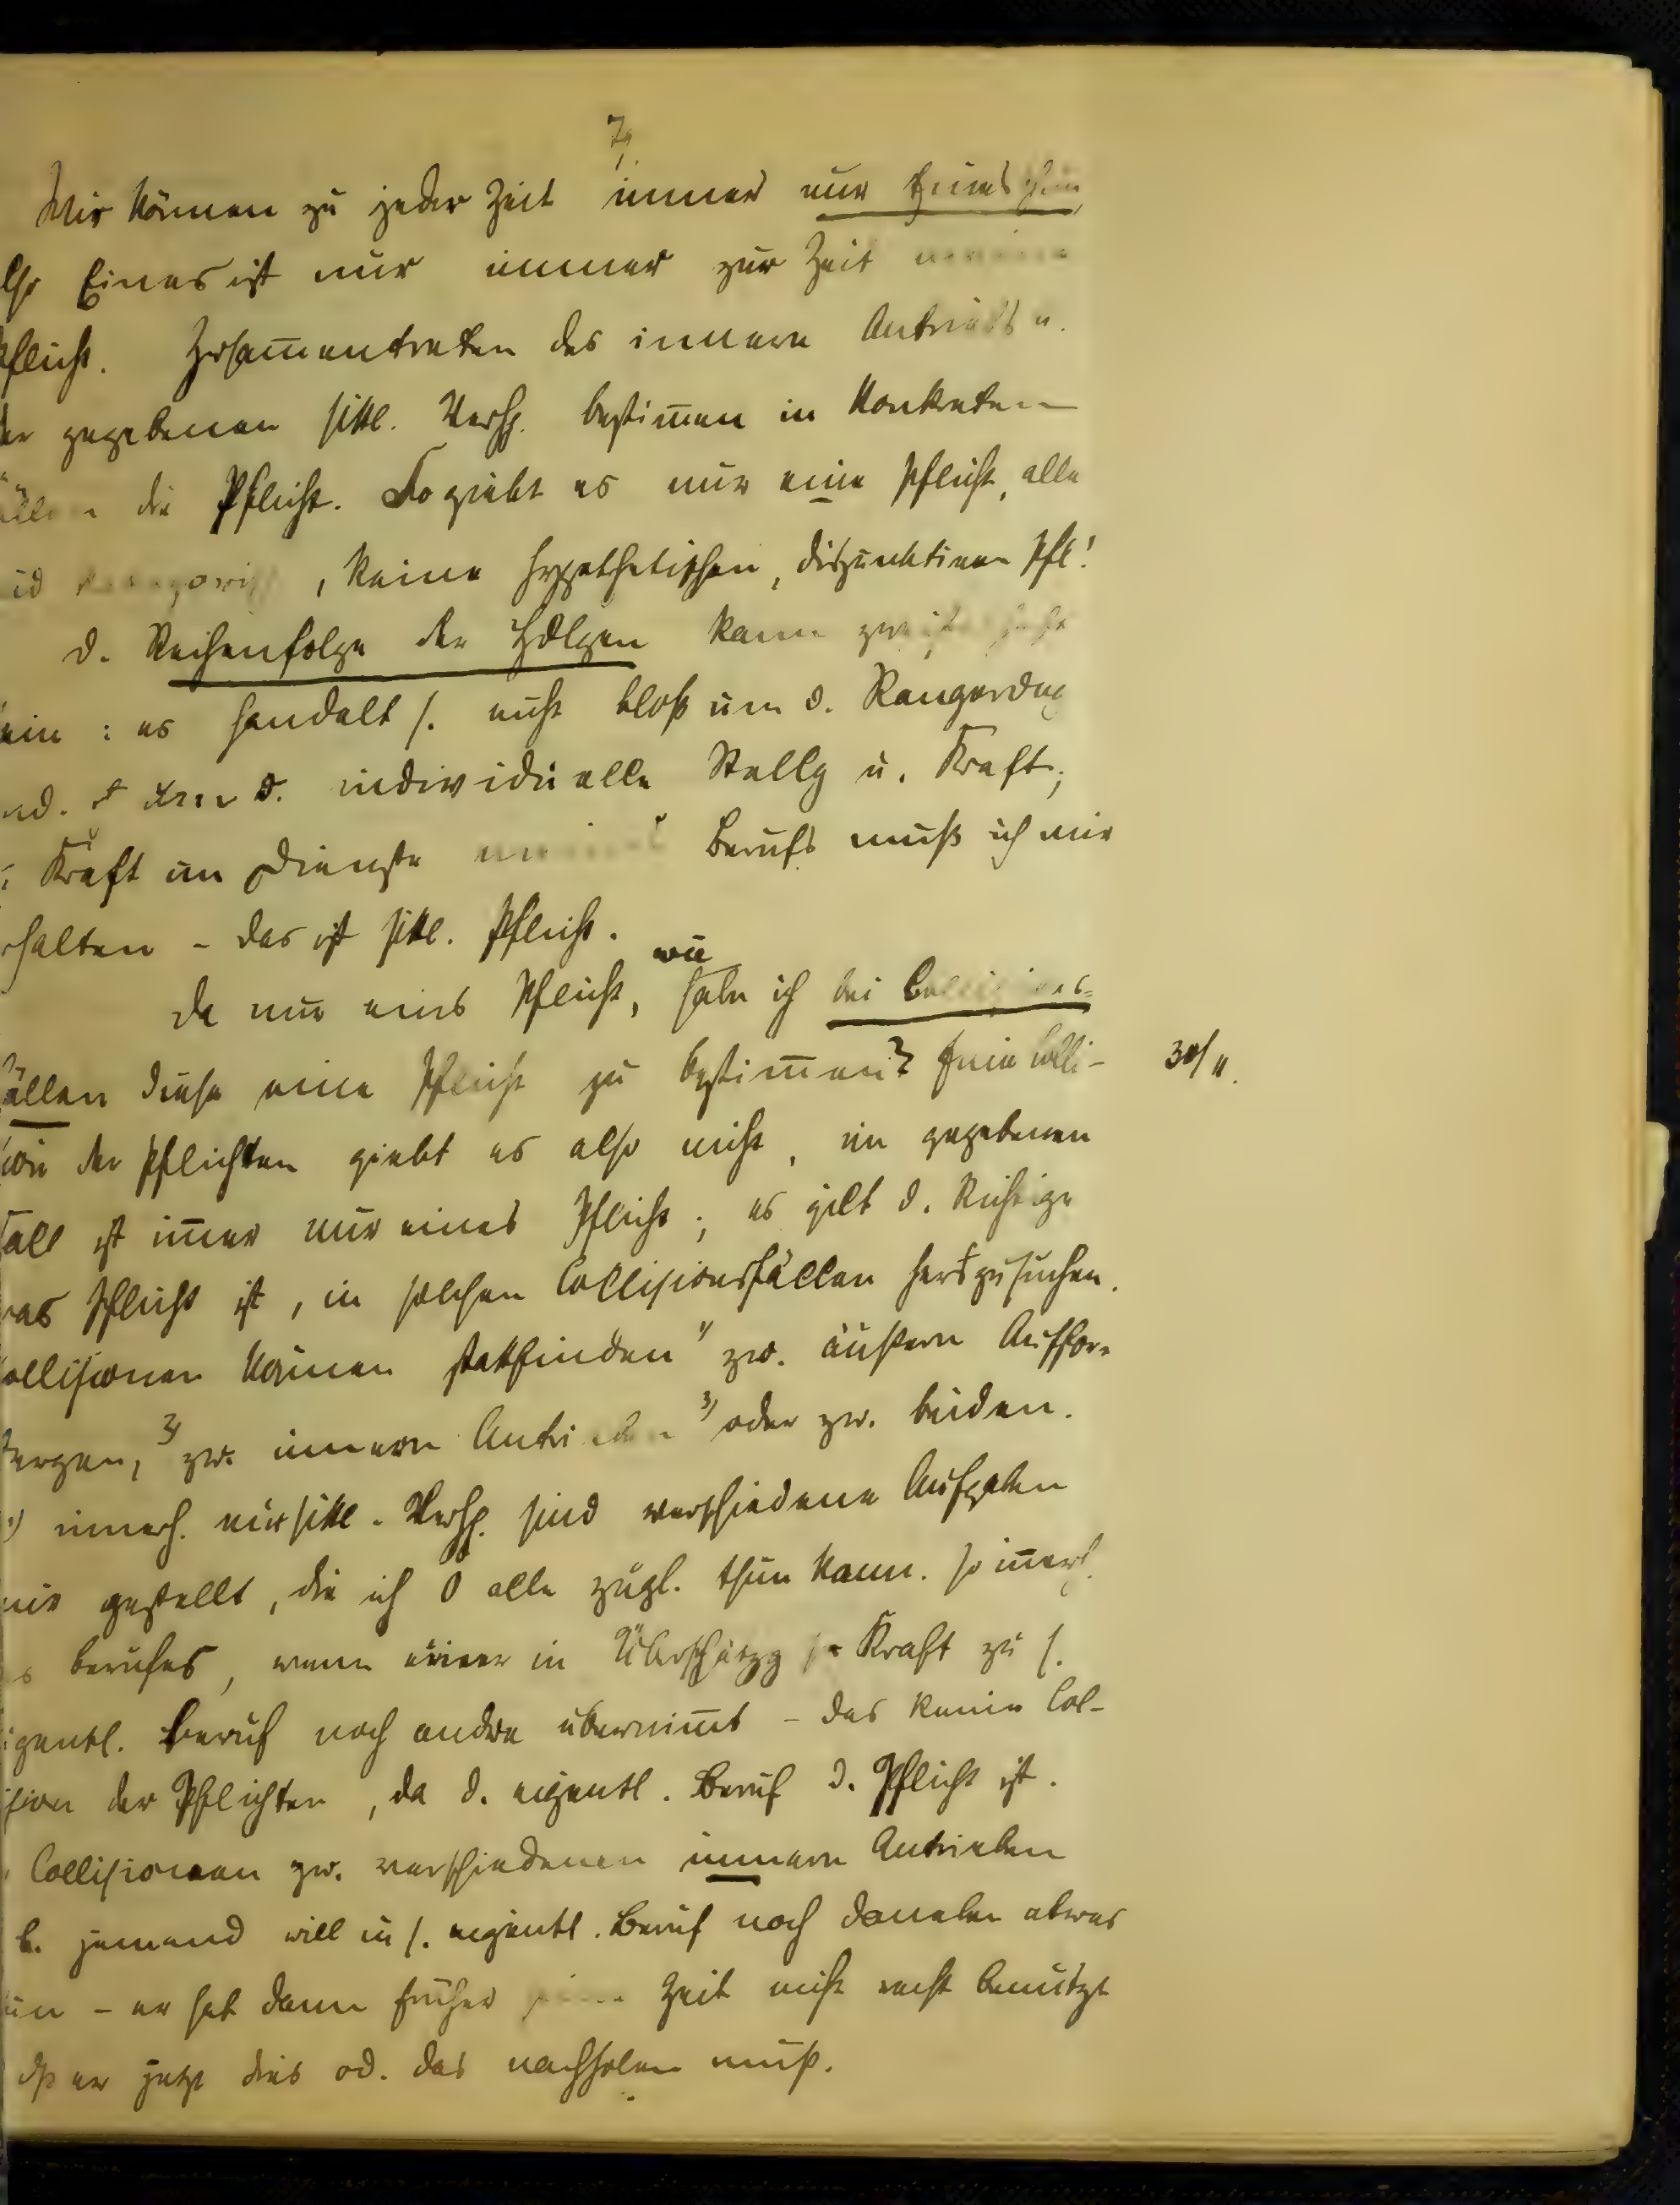 7,
Wir können zu jeder Zeit immer nur Eines thun,
Eines ist nur immer zur Zeit meine
Pflicht. Zusam̄entreten des innern Antriebs u.
der gegebenen sittl. Verh. bestim̄en in Konkreten
Fällen die Pflicht. So giebt es nur eine Pflicht, alle
sind kategorisch, keine hypothetischen, disjunktiven Pfl!
D. Reihenfolge der Hdlgen kann zweifelhaft
sein: es handelt s. nicht bloß um d. Rangordng
sd. um d. individuelle Stellg u. Kraft;
Kraft im Dienste meines Berufs muß ich mir
erhalten - das ist sittl. Pflicht.
Da nur eins Pflicht, wie habe ich bei Collisions=
fällen diese eine Pflicht zu bestim̄en? Eine Colli-
sion der Pflichten giebt es also nicht, im gegebenen
Fall ist im̄er nur eines Pflicht; es gilt d. Richtige
was Pflicht ist, in solchen Collisionsfällen herauszusuchen.
Collisionen können stattfinden 1) zw. äußern Auffor-
dergen, 2) zw. innern Antrieben 3) oder zw. beiden.
1) innerh. sittl. Verh. sind verschiedene Aufgaben
mir gestellt, die ich 0 alle zugl. thun kann. so innerh.
des Berufes, wenn einer in Überschätzg sr Kraft zu s.
eigentl. Beruf noch andre übernim̄t - das keine Col-
lision der Pflichten, da d. eigentl. Beruf d. Pflicht ist.
Collisionen zw. verschiedenen innern Antrieben
z. B. jemand will in s. eigentl. Beruf noch daneben etwas
thun - er hat dann früher seine Zeit nicht recht benützt
dß er jetzt dies od. das nachholen muß.
30/11.